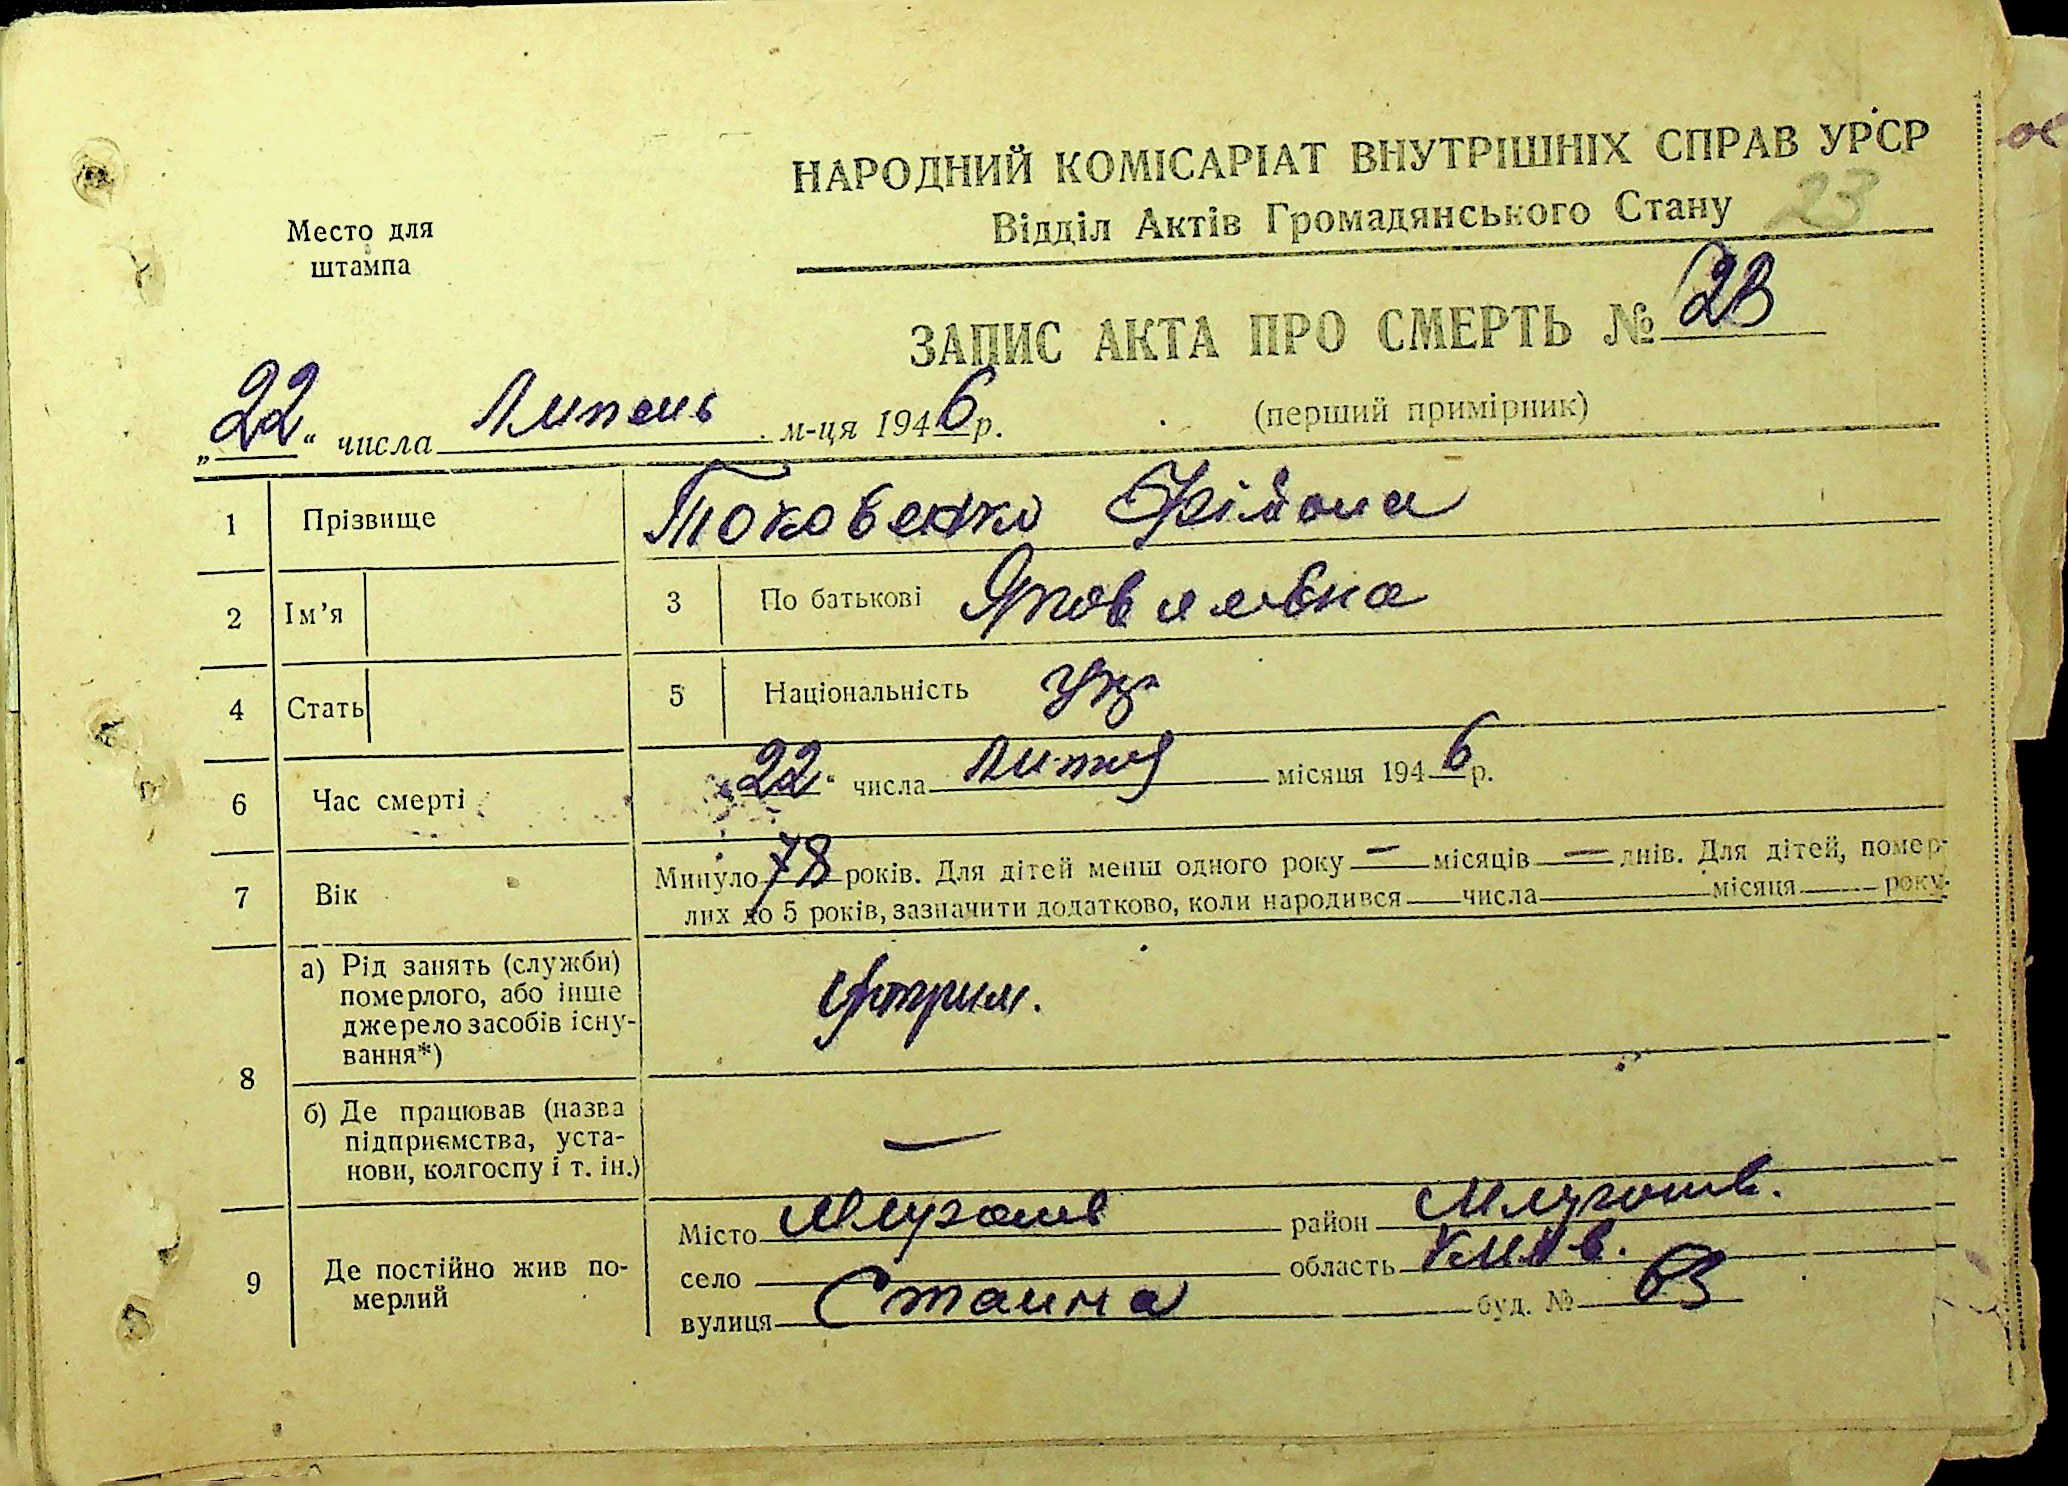 НАРОДНИЙ КОМІСАРІАТ ВНУТРІШНІХ СПРАВ УРСР
Відділ Актів Громадянського Стану
23
Место для
штампа
ЗАПИС АКТА ПРО СМЕРТЬ № 23
„22“ числа Липень м-ця 1946 р.
(перший примірник)
1 Прізвище Токовенко
2 Ім'я
3 По батькові
4 Стать
5 Національність укр
6 Час смерті „22“ числа Липня місяця 1946 р.
7 Вік
Минуло 78 років. Для дітей менш одного року — місяців — днів. Для дітей, помер-
лих до 5 років, зазначити додатково, коли народився числа місяця року.
8
а) Рід занять (служби)
померлого, або інше
джерело засобів існу-
вання*)
б) Де працював (назва
підприємства, уста-
нови, колгоспу і т. ін.)
—
9 Де постійно жив по-
мерлий
Місто район
село область Київ.
вулиця буд. № 63